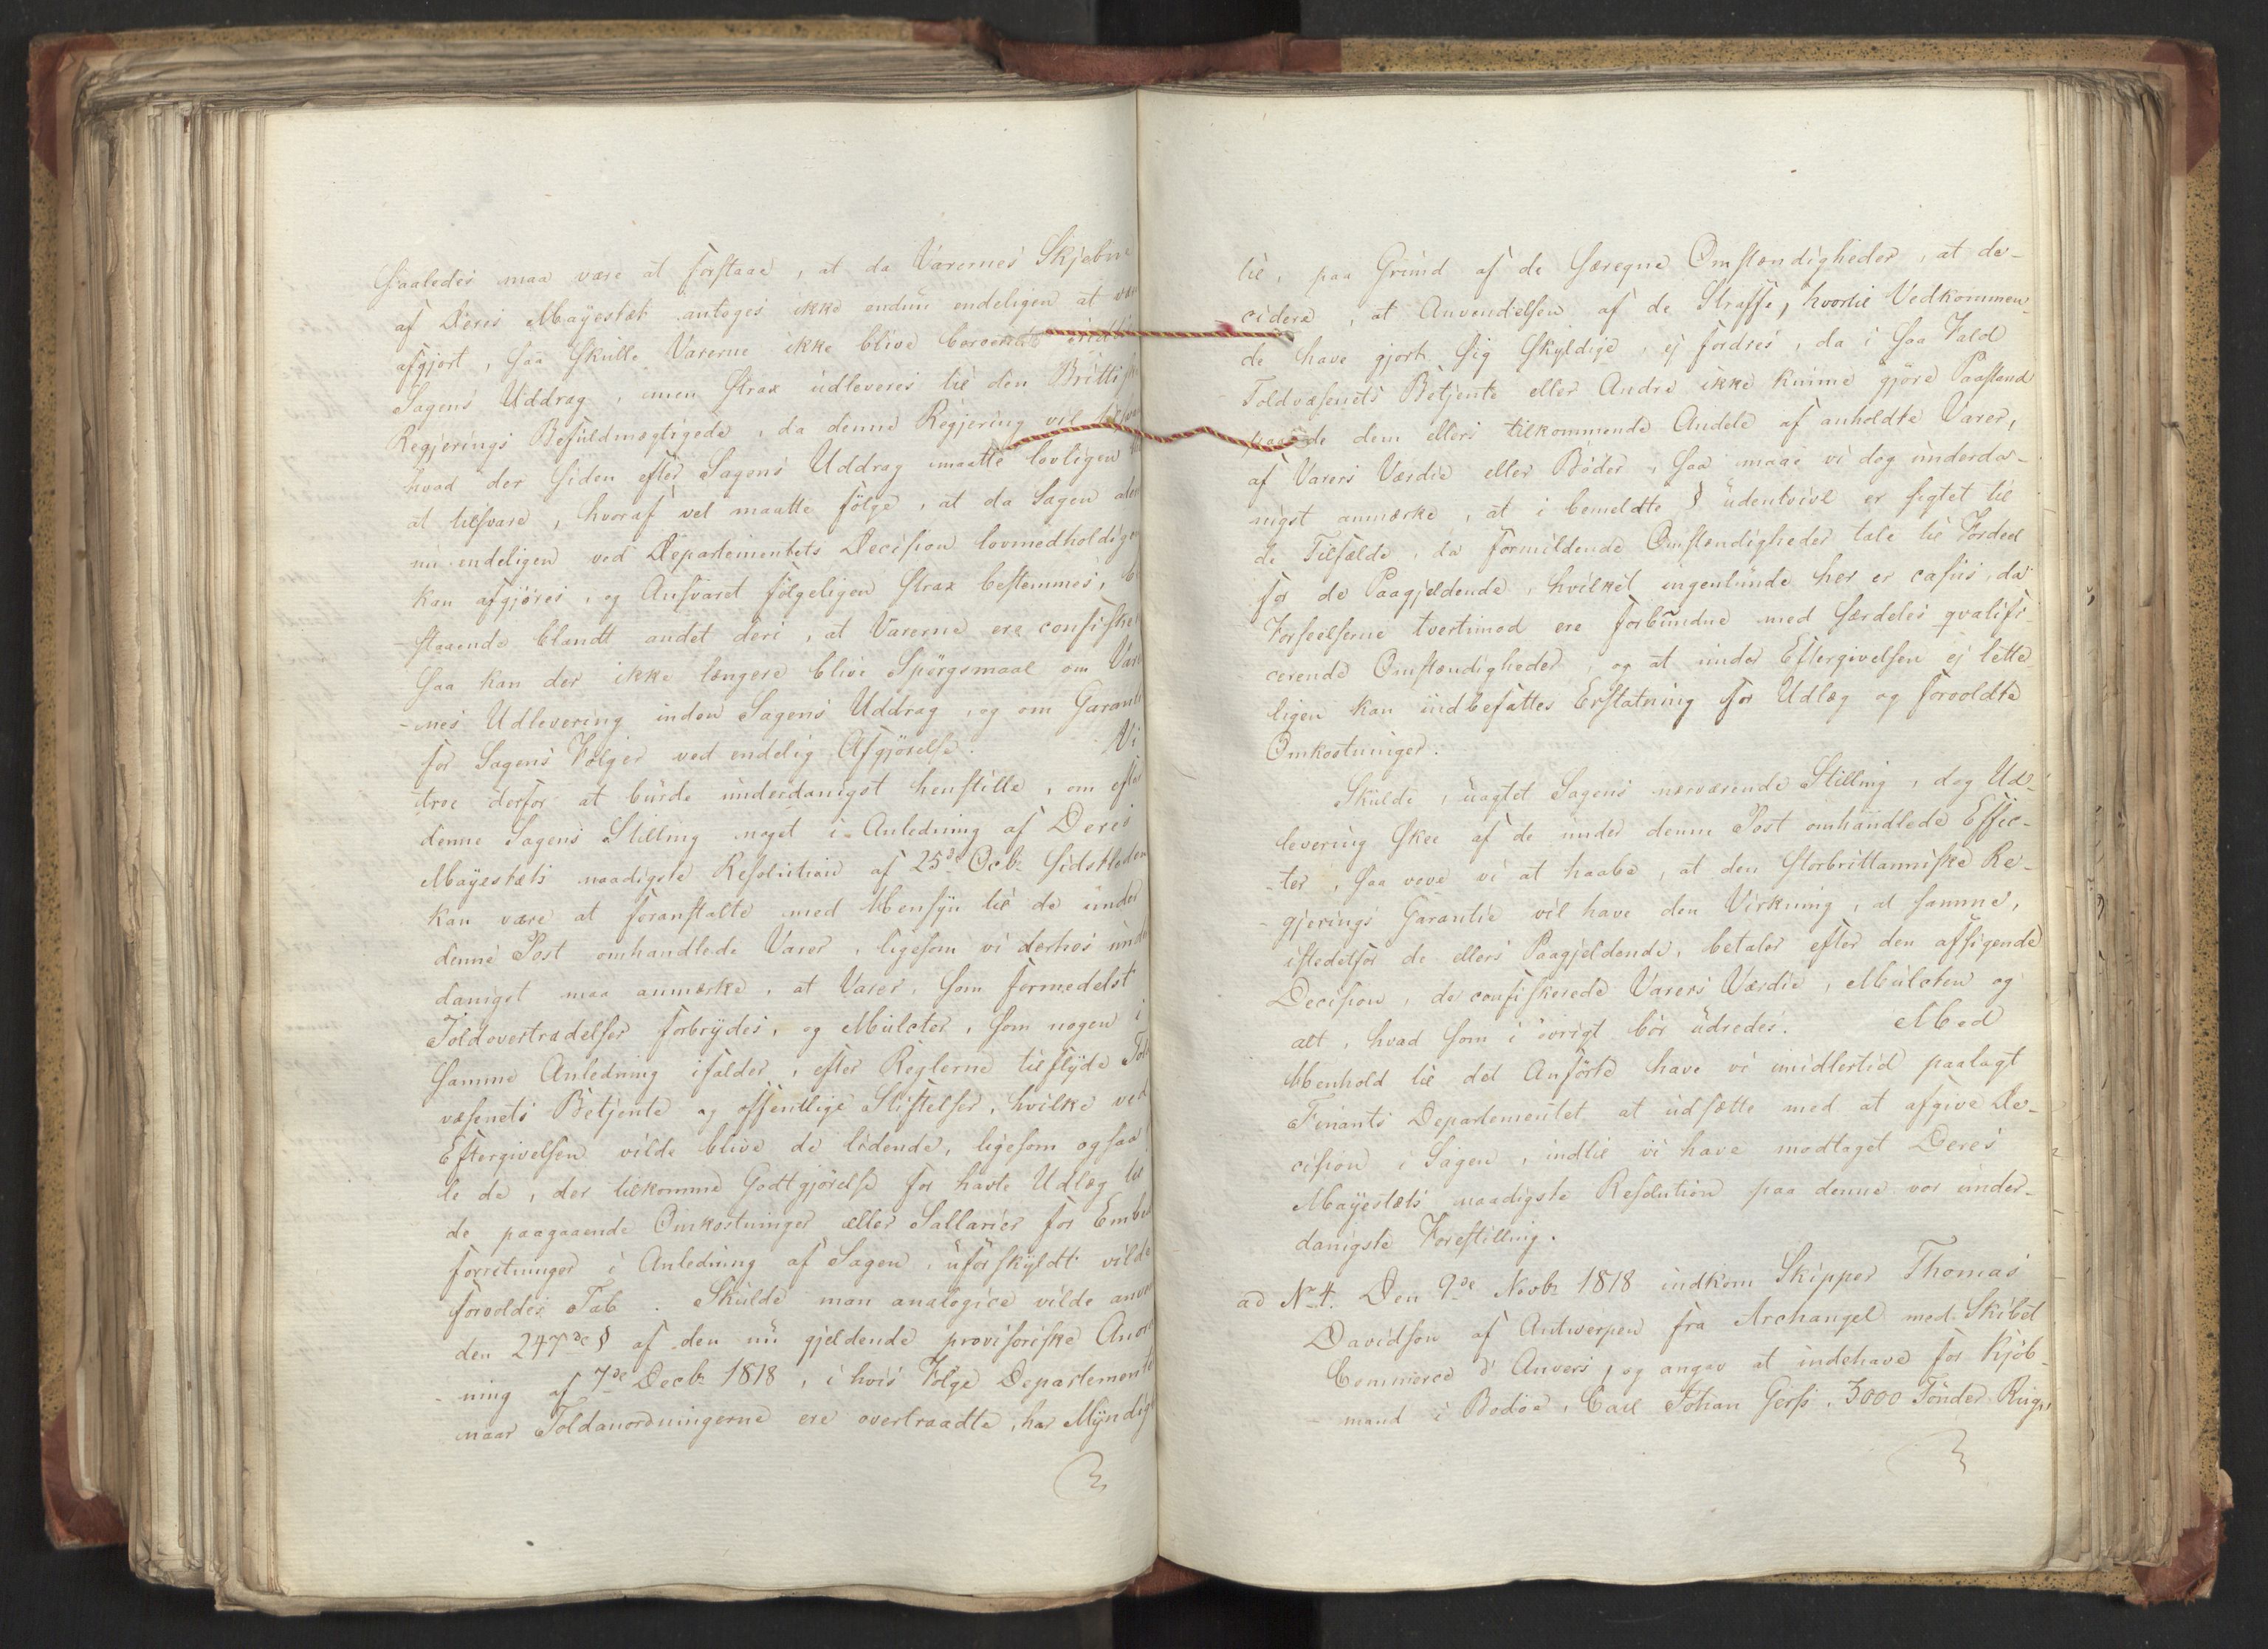 saaledes maa være at forstaae, at da Varernes Skjebne
af Deres Mayestæt antoges ikke endnu endeligen at være
afgjort, saa skulle Varerne ikke blive beroende indtil
Sagens Uddrag, men strax udleveres til den Brittiske
Regjerings Befuldmægtigede, da denne Regjering vil
hvad der siden efter Sagens Uddrag maatte lovligen
at tilsvare, hvoraf vel maatte følge, at da Sagen
nu endeligen ved Departementets Decision lovmedholdigen
kan afgjøres, og Ansvaret følgeligen strax bestemmes, be-
staaende blandt andet deri, at Varerne ere confiskerede
saa kan der ikke længere blive Spørgsmaal om Varer-
-nes Udlevering inden Sagens Uddrag, og om Garantie
for Sagens Følger ved endelig Afgjørelse. Vi
troe derfor at burde underdanigst henstille, om efter
denne Sagens Stilling noget i Anledning af Deres
Mayestæts naadigste Resolution af 25de Octbr sidstleden
kan være at foranstalte med Hensyn til de under
denne Post omhandlede Varer, ligesom vi derhos under-
danigst maa anmærke, at Varer, som formedelst
Toldovertrædelser forbrydes, og Mulcter, som nogen i
samme Anledning ifalder, efter Reglerne tilflyde Told-
væsenets Betjente og offentlige Stiftelser, hvilke ved
Eftergivelsen vilde blive de lidende, ligesom ogsaa
le de, der tilkomme Godtgjørelse for havte Udlæg til
de paagaaende Omkostninger eller Sallarier for Embeds-
forretninger i Anledning af Sagen, uforskyldt vilde
forvoldes Tab. Skulde man analogice vilde anvende
den 247de § af den nu gjeldende provisoriske Anord-
-ning af 7de Decbr 1818, i hvis Følge Departementet
naar Toldanordningerne ere overtraadte, har Myndighed
til, paa Grund af de særegne Omstændigheder, at de-
cidere, at Anvendelsen af de Straffe, hvortil Vedkommen-
de have gjort sig skyldige, ej fordres, da i saa Fald
Toldvæsenets Betjente eller Andre ikke kunne gjøre Paastand
paa de dem ellers tilkommende Andele af anholdte Varer,
af Varers Værdie eller Bøder, saa maae vi dog underda-
nigst anmærke, at i bemeldte § udentvivl er sigtet til
de Tilfælde, da formildende Omstændigheder tale til Fordeel
for de Paagjeldende, hvilket ingenlunde her er casus, da
Forseelserne tvertimod ere forbundne med særdeles qvalifi-
cerende Omstændigheder, og at under Eftergivelsen ej lette-
ligen kan indbefattes Erstatning for Udlæg og forvoldte
Omkostninger.
Skulde, uagtet Sagens nærværende Stilling, dog Ud-
levering skee af de under denne Post omhandlede Effec-
-ter, saa vove vi at haabe, at den Storbrittanniske Re-
-gjerings Garantie vil have den Virkning, at samme,
istedetfor de ellers Paagjeldende, betaler efter den afsigende
Decision, de confiskerede Varers Værdie, Mulcten og
alt, hvad som i øvrigt bør udredes. Med
Henhold til det Anførte have vi imidlertid paalagt
Finants Departementet at udsætte med at afgive De-
cision i Sagen, indtil vi have modtaget Deres
Mayestæts naadigste Resolution paa denne vor under-
danigste Forestilling.
ad No 4. Den 9de Novbr 1818 indkom Skipper Thomas
Davidson af Antwerpen fra Archangel med Skibet
Commerce d'Anvers, og angav at indehave for Kjøb-
- mand i Bodøe, Carl Johan Gerss, 3000 Tønder Rug,